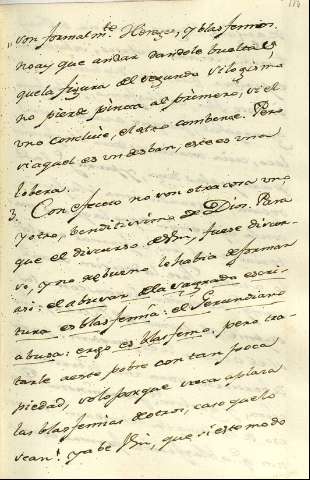 son formalm.te Heregias, y blasfemias.
no ay que andar dandole bueltas,
que la figura del segundo silogismo
no pierde pinta al primero; si el
uno concluie, el otro combence. Pero
si aquel es un desban, este es una
lobera.
3. Con efecto no son otra cosa uno,
y otro, benditissimo de Dios. Para
que el discurso de Vm, fuese discur-
so, y no de bueno lo habia de formar
asi: el abusar de la sagrada escri-
tura es blasfemia: el Gerundiano
abusa: ergo es blasfemo; pero tra-
tarle a este pobre con tan poca
piedad, solo porque saca a plaza
las blasfemias de otros, caso que lo
sean! Sabe Vm, que si este modo